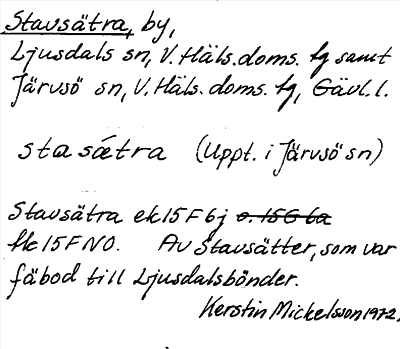 Stavsätra, by,
Ljusdals sn, V. Häls. doms. fg samt
Järvsö sn, V. Häls. doms. fg, Gävl. l.
stasǽtra (Uppt. i Järvsö sn)
Stavsätra ek 15 F 6j o. 15 G 6a
flk 15 F NO. Av Stavsätter, som var
fäbod till Ljusdalsbönder.
Kerstin Mickelsson 1972.